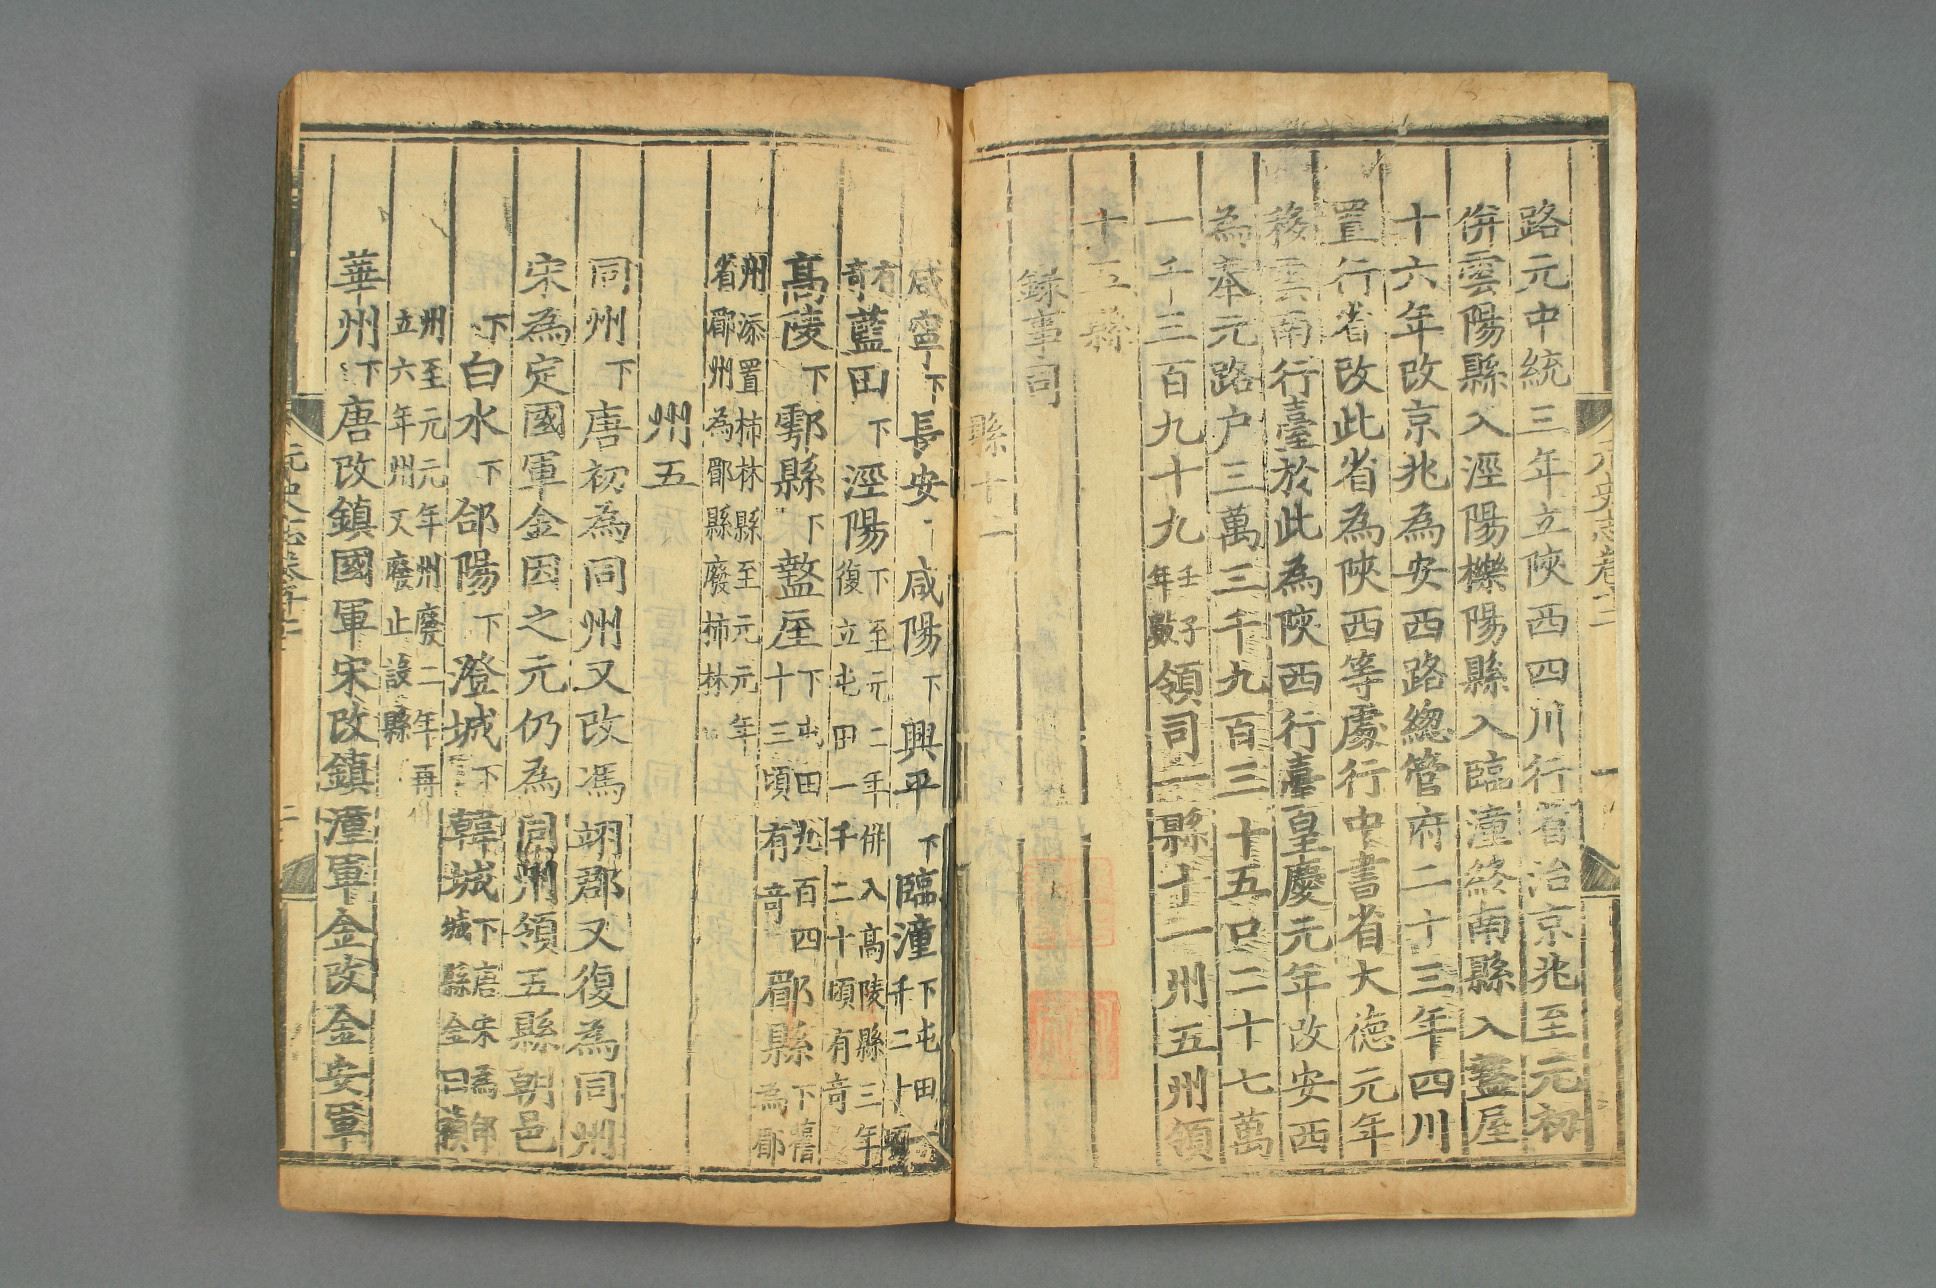 路元中統三年立陝西四川行省治京兆至元初
併雲陽縣入涇陽櫟陽縣入臨潼終南縣入盩厔
十六年改京兆為安西路緫管府二十三年四川
置行省改此省為陝西等處行中書省大德元年
移雲南行臺於此為陝西行臺皇慶元年改安西
為奉元路户三萬三千九百三十五口二十七萬
一千三百九十九壬子年數領司一縣十一州五州領
十五縣
錄事司
縣十一
咸寧下長安下咸陽下興平下臨潼下屯田千二十頃
有竒藍田下涇陽下至元二年併入高陵縣三年復立屯田一千二十頃有竒
高陵下鄠縣下盩厔下屯田九百四十三頃有竒郿縣下舊為郿
州添置柿林縣至元元年省郿州為郿縣廢柿林
州五
同州下唐初為同州又改馮翊郡又復為同州
宋為定國軍金因之元仍為同州領五縣朝邑
下白水下郃陽下澄城下韓城下唐宋為韓城縣金曰楨
州至元元年州廢二年再立六年州又廢止設縣
華州下唐改鎮國軍宋改鎮潼軍金改金安軍
元史志卷十二
二